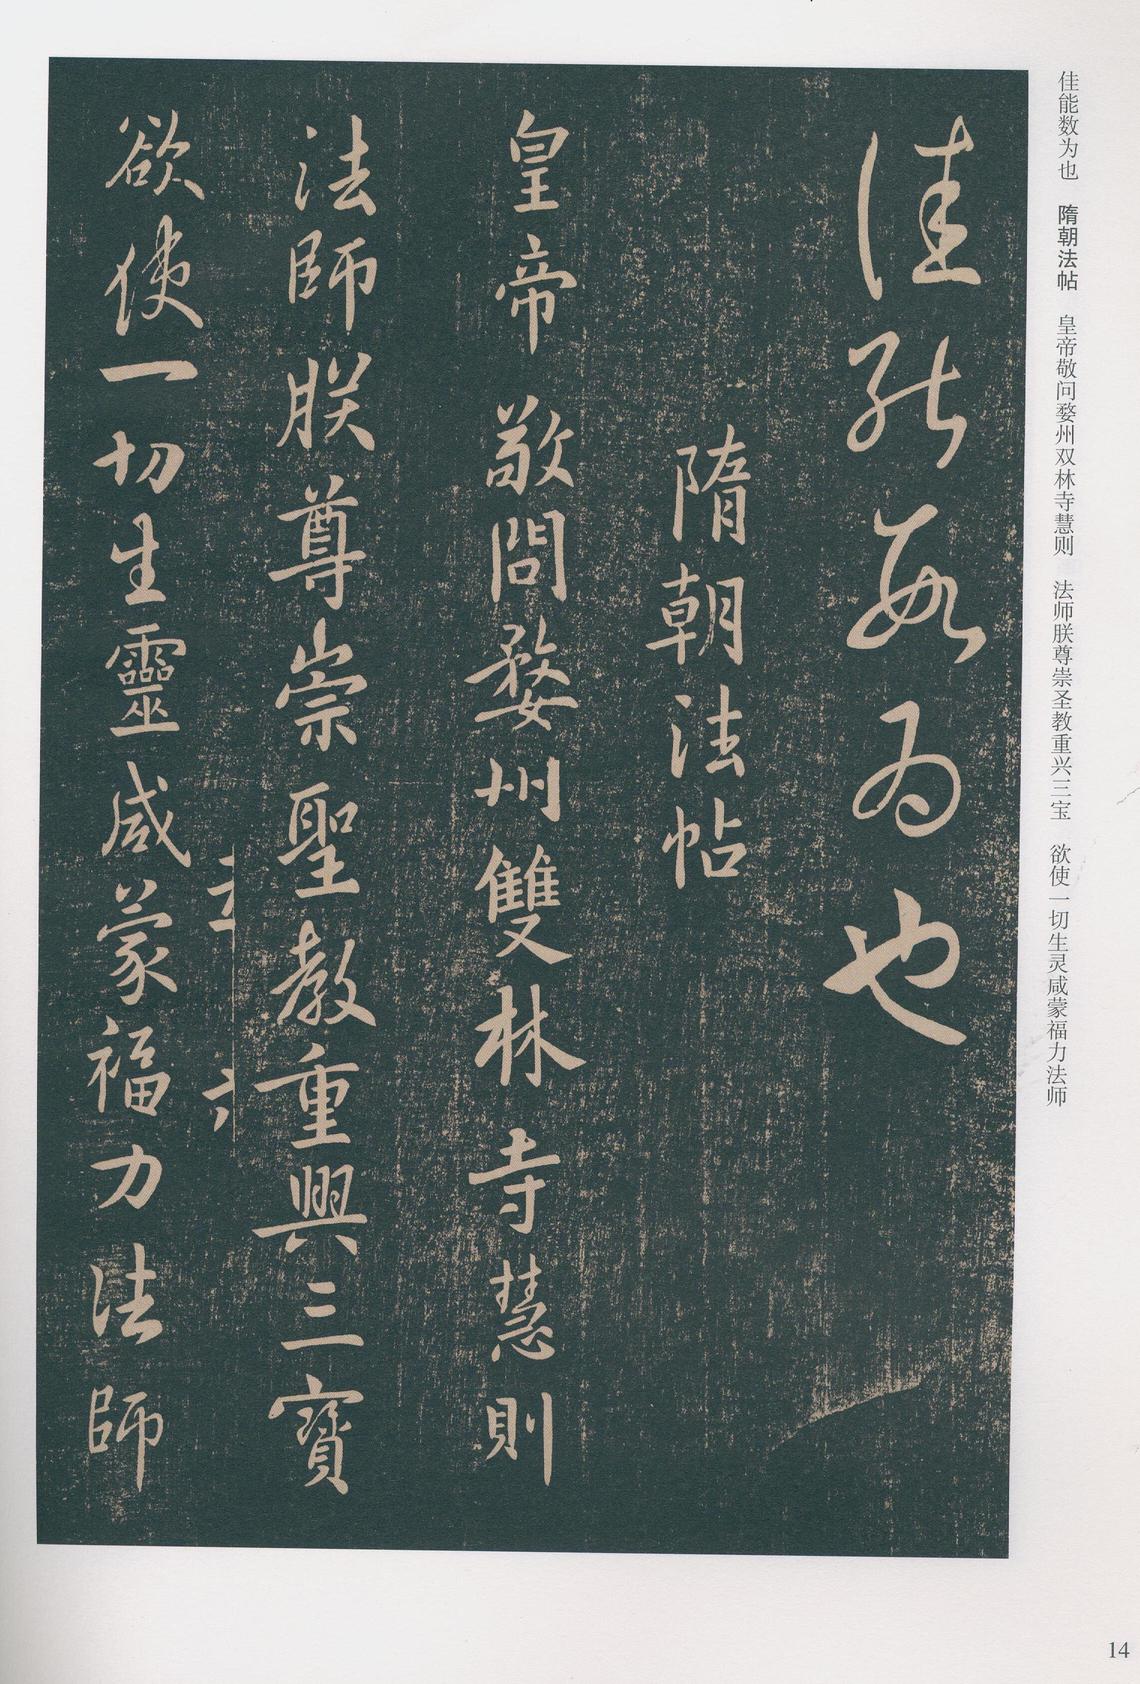 佳能数为也　隋朝法帖　皇帝敬问婺州双林寺慧则　法师朕尊崇圣教重兴三宝　欲使一切生灵咸蒙福力法师
佳能數为也
隋朝法帖
皇帝敬問婺州雙林寺慧則
法師朕尊崇聖教重興三寶
欲使一切生靈咸蒙福力法師
14